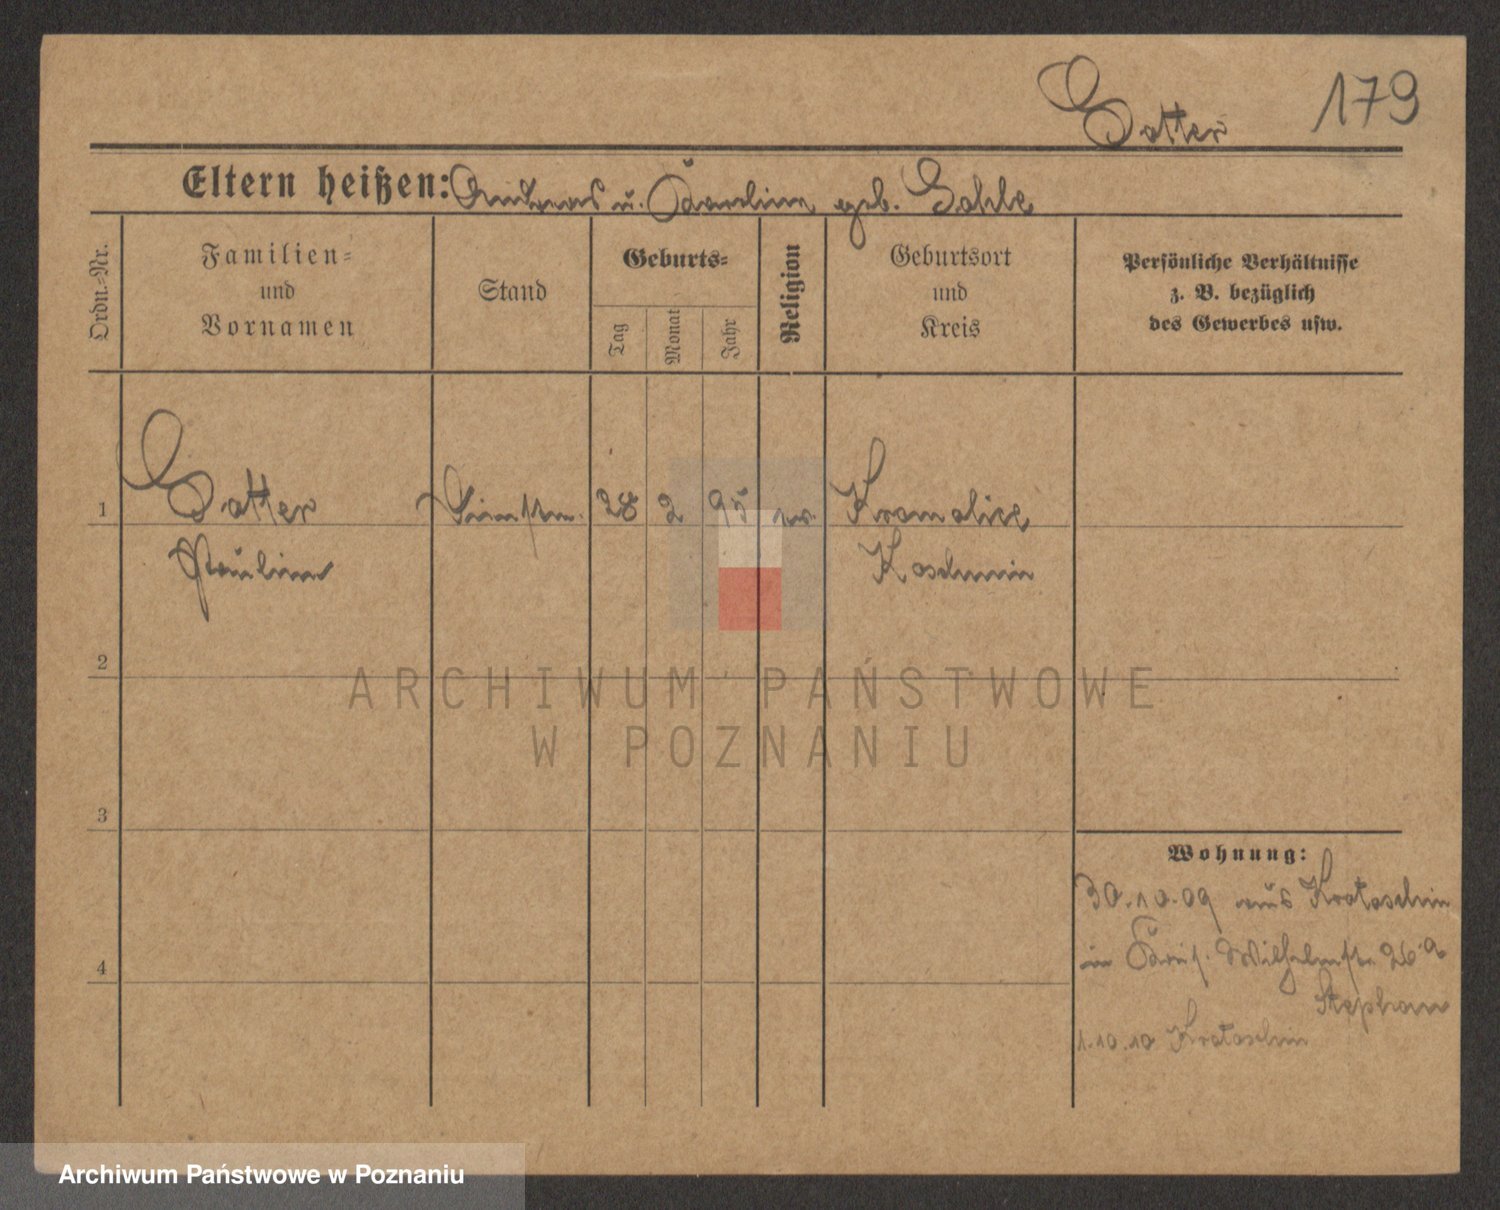 Gatter
179
Eltern heißen: Andreas u. Karolina geb. Gahle
Ordn.-Nr.
Familien-
und
Vornamen
Stand
Geburts-
Tag
Monat
Jahr
Religion
Geburtsort
und
Kreis
Persönliche Verhältnisse
z. B. bezüglich
des Gewerbes usw.
1
Gatter
28 2 95 ev.
Kromolice
Paulina
Koschmin
2
3
4
Wohnung:
30.10.09 aus Krotoschin
in Wilhelmstr. 26a
Stephan
1.10.10 Krotoschin
ARCHIWUM PAŃSTWOWE
W POZNANIU
Archiwum Państwowe w Poznaniu